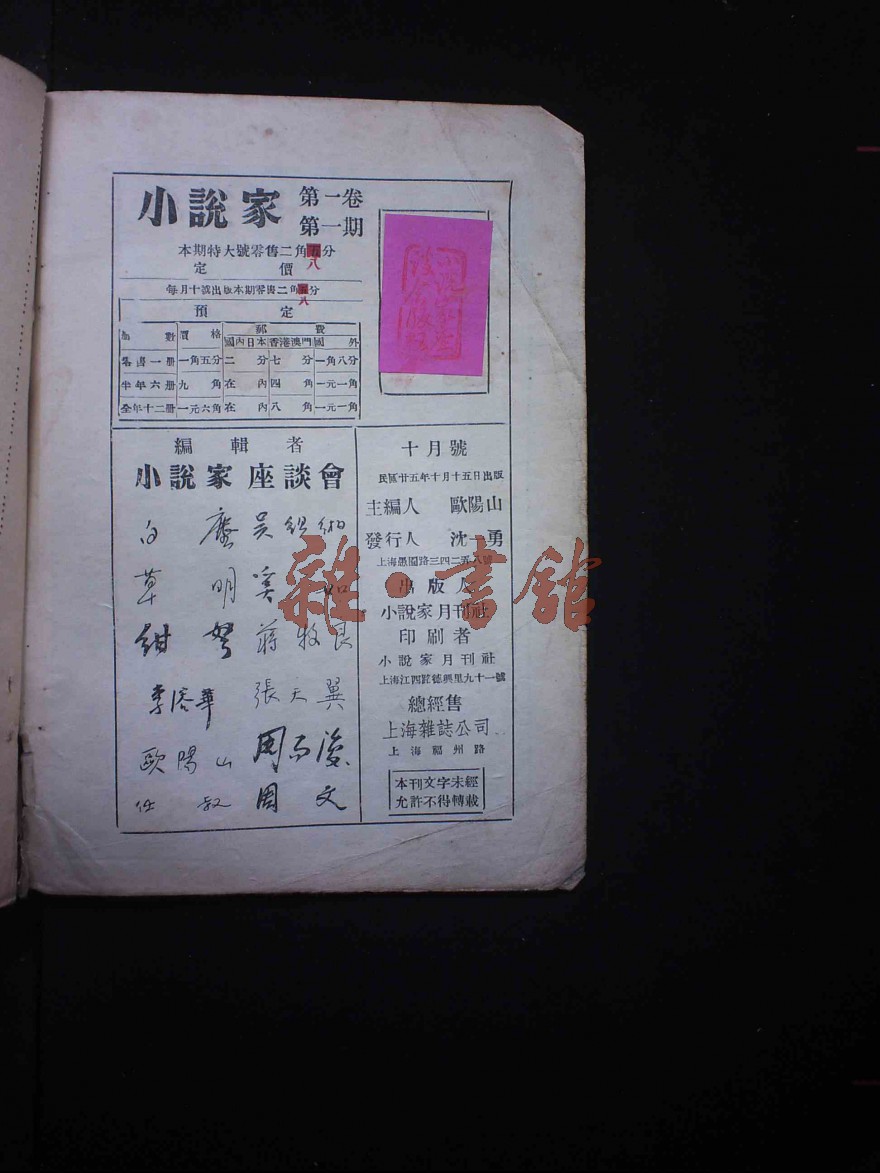 小說家 第一卷
第一期
本期特大號零售二角五分
八
定價
每月十號出版本期零售二角五分
八
預定
冊數 價格 郵費
國內日本 香港澳門 國外
零售一冊 一角五分 二分 七分 一角八分
半年六冊 九角 在內 四角 一元一角
全年十二冊 一元六角 在內 八角 一元一角
編輯者
小說家座談會
白塵 吳組緗
草明 奚如
紺弩 蔣牧良
李溶華 張天翼
歐陽山 周而復
任叔 周文
十月號
民國廿五年十月十五日出版
主編人 歐陽山
發行人 沈一勇
上海愚園路三四二弄八號
出版人
小說家月刊社
印刷者
小說家月刊社
上海江西路德興里九十一號
總經售
上海雜誌公司
上海福州路
本刊文字未經
允許不得轉載
雜·書館